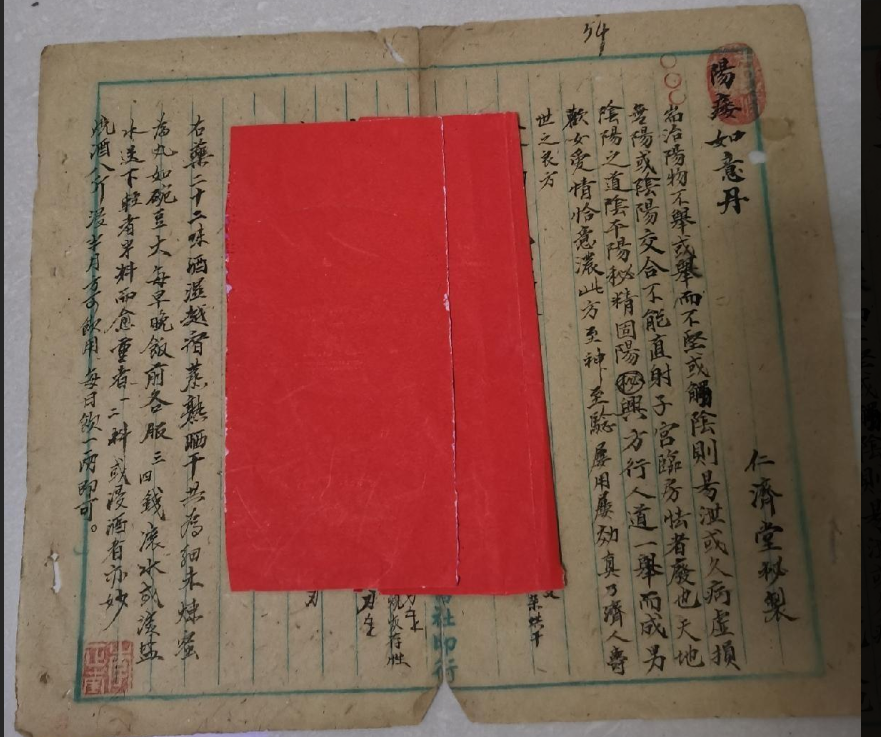 54
陽痿如意丹
仁濟堂秘製
耑治陽物不舉或舉而不堅或觸陰則易泄或久病虛損
無陽或陰陽交合不能直射子宮臨房怯者廢也天地
陰陽之道陰平陽秘精固陽秘興方行人道一舉而成男
歡女愛情恰意濃此方至神至驗屢用屢効真乃濟人壽
世之良方
右藥二十二味酒浸越宿蒸熟晒干共為細末煉蜜
為丸如豌豆大每早晚飯前各服三四錢滾水或淡盐
水送下輕者半料而愈重者一二料或浸酒者亦妙
燒酒八斤浸半月方可飲用每日飲一兩即可。
社印行
烘干
存性